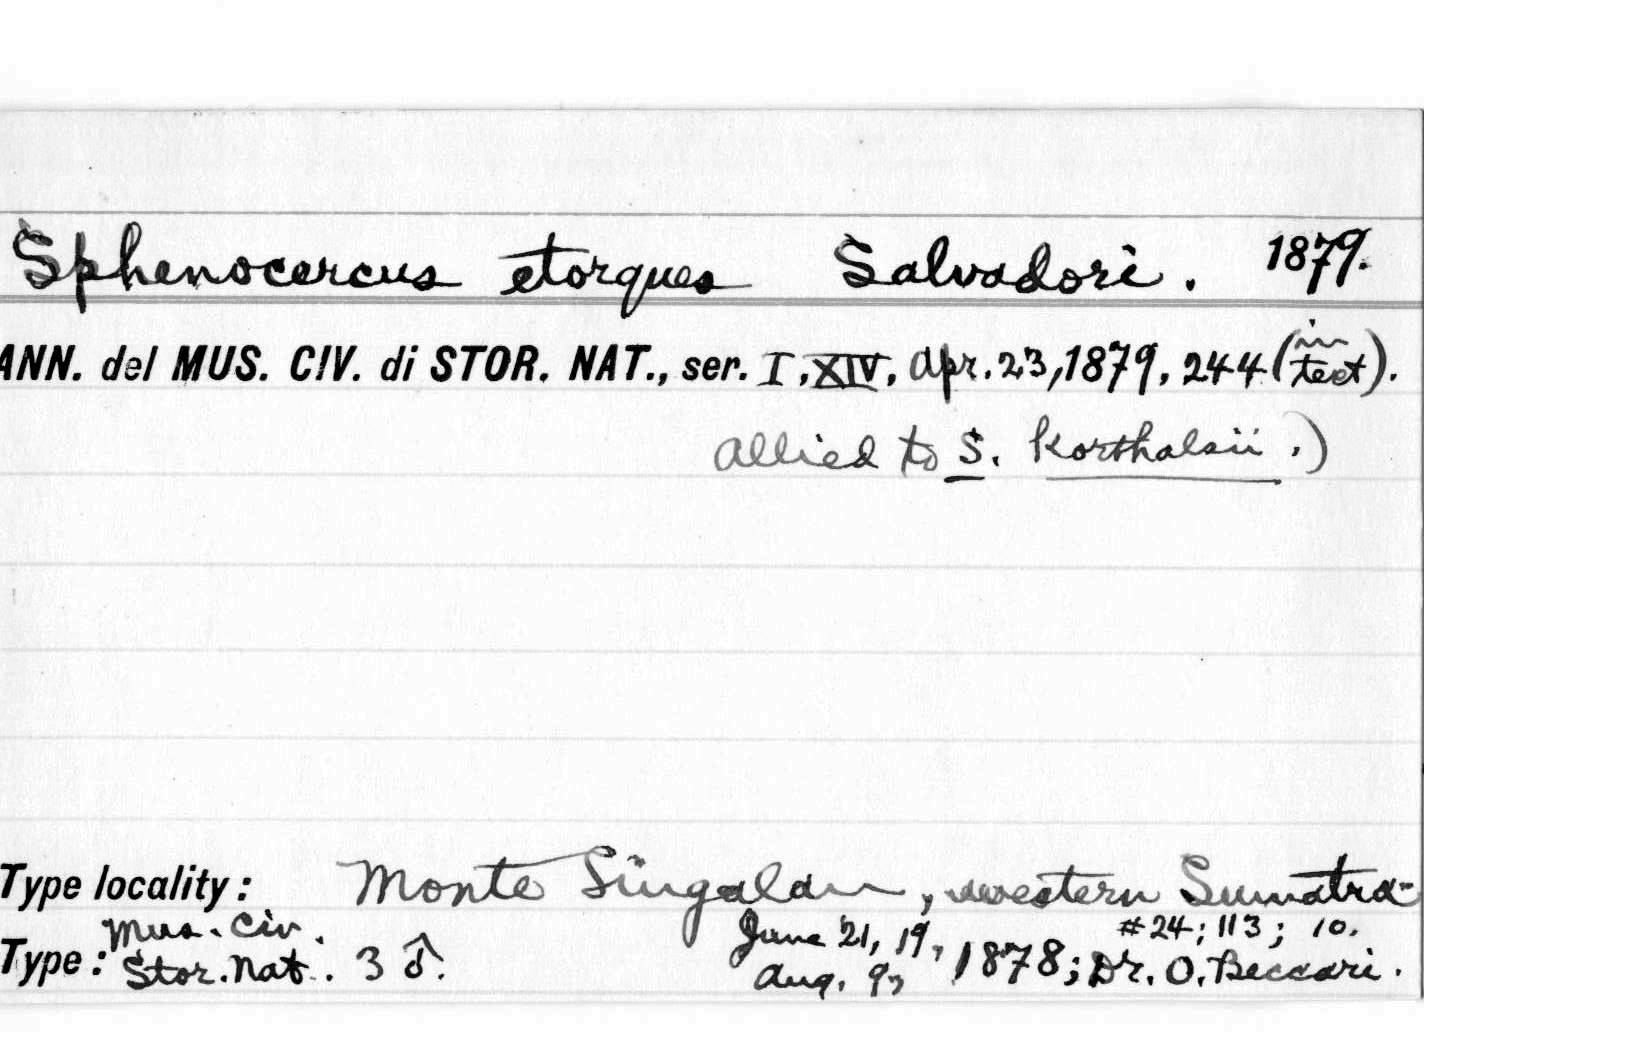 Sphenocercus etorques Salvadori. 1879.
ANN. del MUS. CIV. di STOR. NAT., ser. I, XIV, Apr. 23, 1879, 244 (in text).
allied to S. Korthalsii.)
Type locality: Monte Singalan, western Sumatra
Mus. Civ. June 21, 19, #24; 113; 10.
Type: Stor. Nat. 3 ♂. Aug. 9, 1878; Dr. O. Beccari.